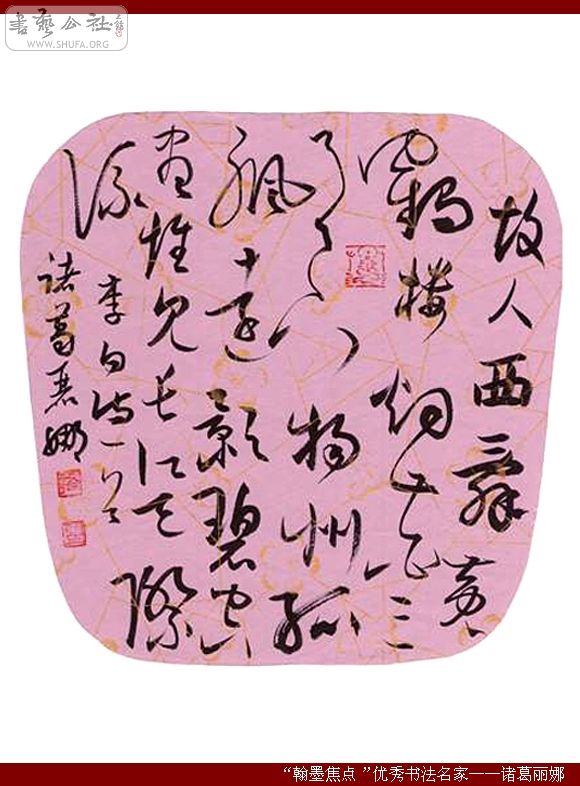 書藝公社
WWW.SHUFA.ORG
故人西辭黄
鶴樓烟花三
月下揚州孤
帆遠影碧空
盡惟見長江天際
流
李白詩一首
諸葛麗娜
“翰墨焦点 ”优秀书法名家——诸葛丽娜